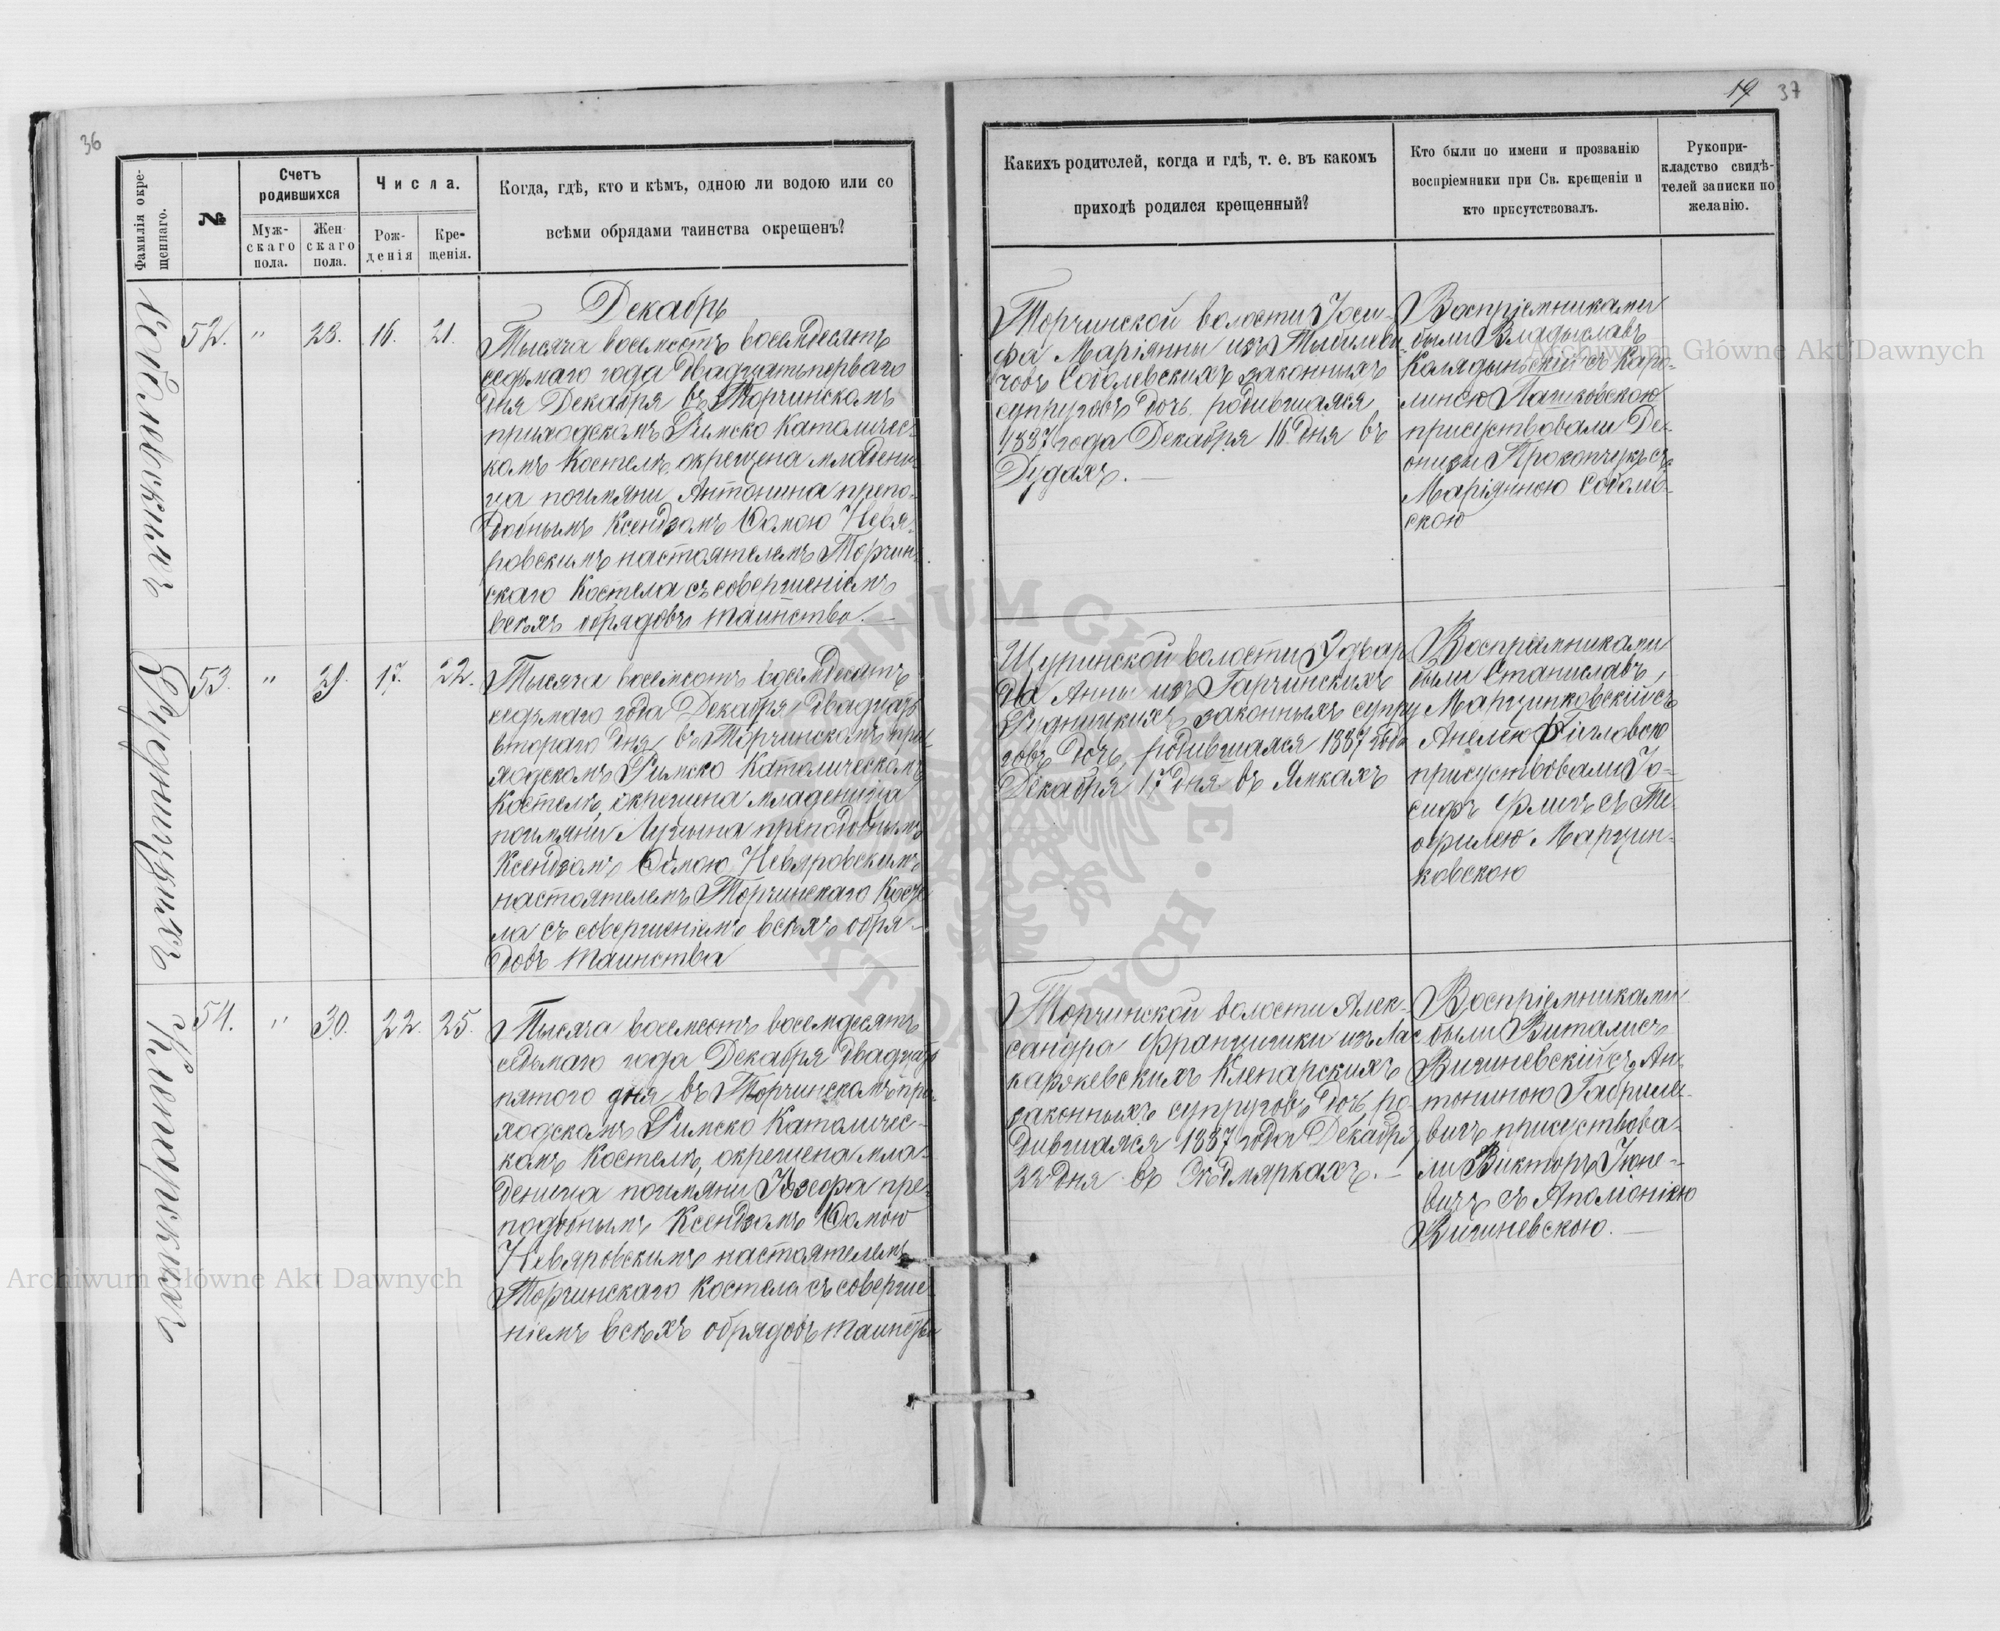 36
Фамилія окре-
щеннаго.
№
Счетъ
родившихся
Муж-
скаго
пола.
Жен-
скаго
пола.
Числа.
Рож-
денія
Кре-
щенія.
Когда, гдѣ, кто и кѣмъ, одною ли водою или со
всѣми обрядами таинства окрещенъ?
Декабрь
52. " 28. 16. 21.
Тысяча восемсотъ восемдесятъ
седьмаго года двадцатьперваго
дня Декабря въ Торчинскомъ
приходскомъ Римско Католичес-
комъ Костелѣ окрещена младени-
ца поимяни Антонина препо-
добнымъ Ксендзомъ Ѳомою Невя-
ровскимъ настоятелемъ Торчин-
скаго Костела съ совершеніемъ
всѣхъ обрядовъ таинства.
53. " 29. 17. 22.
Рудницкихъ
Тысяча восемсотъ восемдесятъ
седьмаго года Декабря двадцать
втораго дня въ Торчинскомъ при-
ходскомъ Римско Католическомъ
Костелѣ окрещена младеница
поимяни Луцына преподобнымъ
Ксендзомъ Ѳомою Невяровскимъ
настоятелемъ Торчинскаго Косте
ла съ совершеніемъ всѣхъ обря-
довъ таинства
54. " 30. 22. 25.
Клепарскихъ
Тысяча восемсотъ восемдесятъ
седьмаго года Декабря двадцать
пятого дня въ Торчинскомъ при-
ходскомъ Римско Католичес-
комъ Костелѣ, окрещена мла-
деница поимяни Юзефа пре-
подобнымъ Ксендзомъ Ѳомою
Невяровскимъ настоятелемъ
Торчинскаго Костела съ соверше-
ніемъ всѣхъ обрядовъ таинства
19 37
Какихъ родителей, когда и гдѣ, т. е. въ какомъ
приходѣ родился крещенный?
Кто были по имени и прозванію
воспріемники при Св. крещеніи и
кто присутствовалъ.
Рукопри-
кладство свидѣ-
телей записки по
желанію.
Торчинской волости Іоси-
фа Маріянны изъ
Соболевскихъ законныхъ
супруговъ дочь родившаяся
1887 года Декабря 16 дня въ
Дудахъ.
Воспріемниками
были Владыславъ
съ Каро-
линою Пашковскою
присуствовали Де-
онизы Прокопчукъ съ
Маріянною Соболев-
скою
Щуринской волости Эдвар
да Анны изъ Гарчинскихъ
Рудницкихъ законныхъ супру
говъ дочь, родившаяся 1887 года
Декабря 17 дня въ Ямкахъ
Воспріемниками
были Станиславъ
Марцинковскій съ
Анелею
присуствовали Іо-
сифъ съ Те-
офилею Марцин-
ковскою
Торчинской волости Алек-
сандра Францишки изъ Ма-
каржевскихъ Клепарскихъ
законныхъ супруговъ дочь, ро-
дившаяся 1887 года Декабря
22 дня въ Сѣдмяркахъ.
Воспріемниками
были Виталисъ
Вишневскій съ Ан-
тониною Габриле-
вичъ присуствова-
ли Викторъ
вичъ съ Аполіоніею
Вишневскою.
Archiwum Główne Akt Dawnych
Archiwum Główne Akt Dawnych
ARCHIWUM GŁÓWNE AKT DAWNYCH